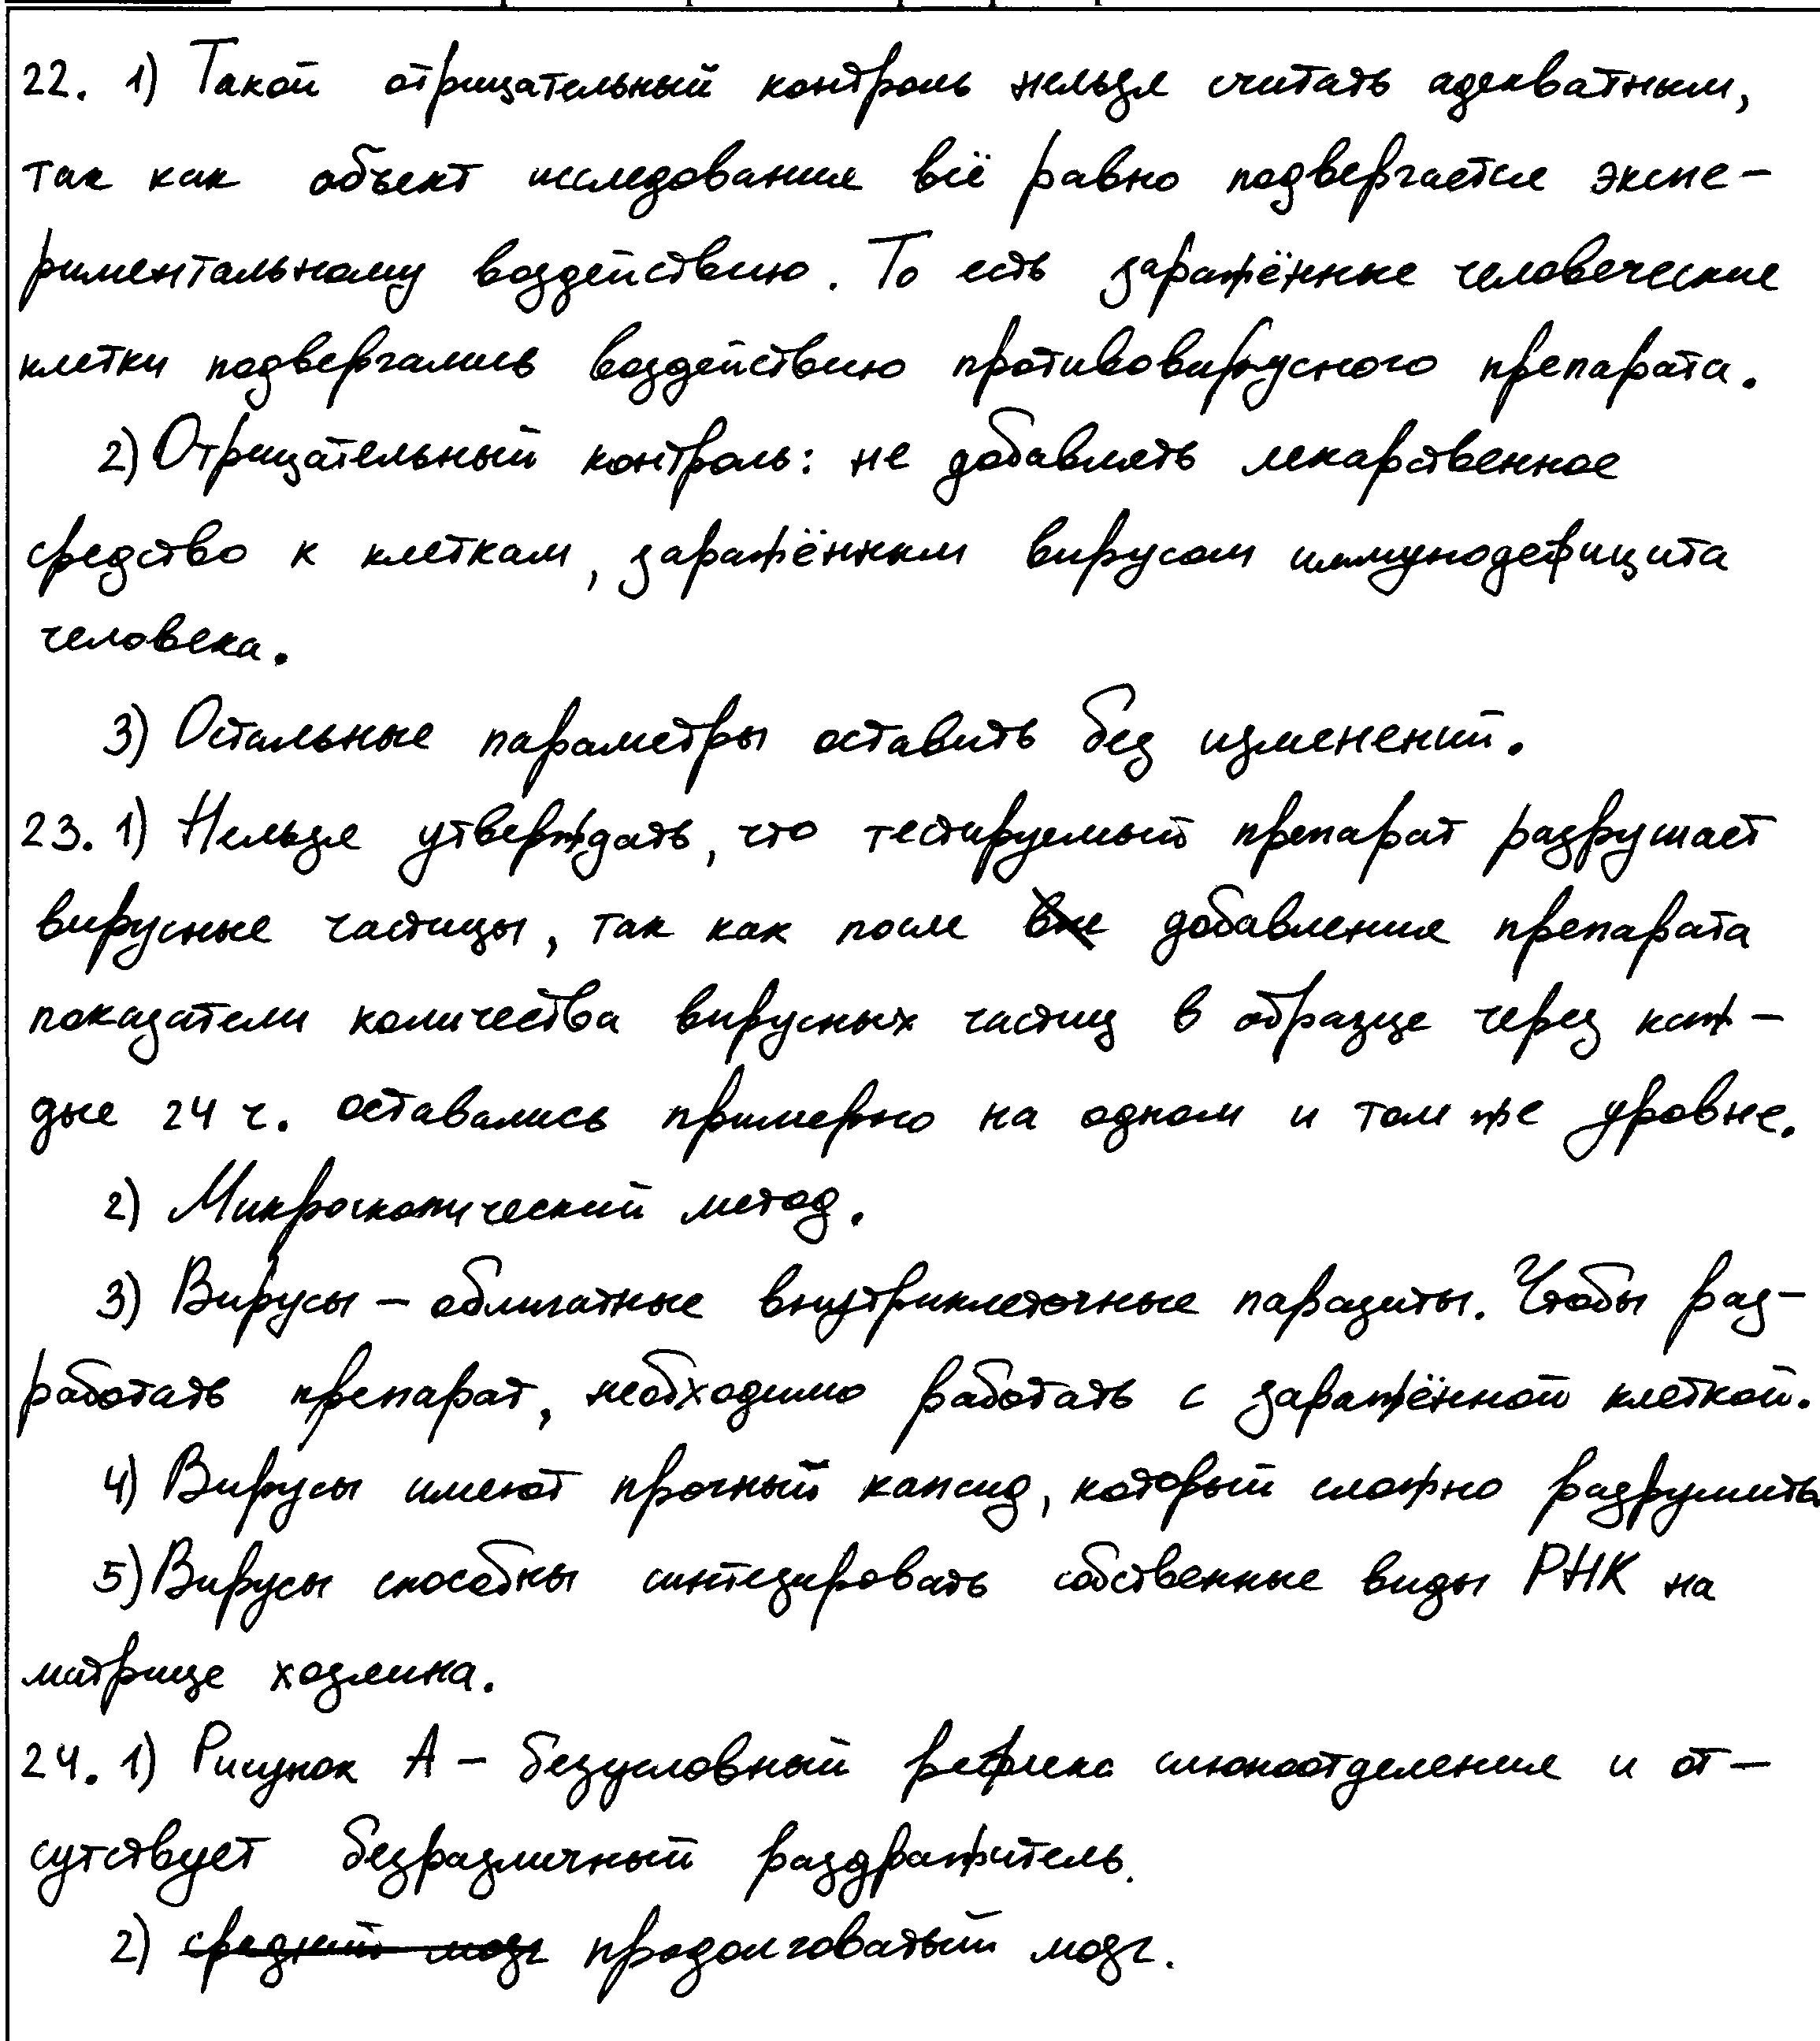 22. 1) Такой отрицательный контроль нельзя считать адекватным,
так как объект исследования всё равно подвергается экспе-
риментальному воздействию. То есть заражённые человеческие
клетки подвергались воздействию противовирусного препарата.
2) Отрицательный контроль: не добавлять лекарственное
средство к клеткам, заражённым вирусом иммунодефицита
человека.
3) Остальные параметры оставить без изменений.
23. 1) Нельзя утверждать, что тестируемый препарат разрушает
вирусные частицы, так как после вне добавления препарата
показатели количества вирусных частиц в образце через каж-
дые 24 ч. оставались примерно на одном и том же уровне.
2) Микроскопический метод.
3) Вирусы – облигатные внутриклеточные паразиты. Чтобы раз-
работать препарат, необходимо работать с заражённой клеткой.
4) Вирусы имеют прочный капсид, который сложно разрушить.
5) Вирусы способны синтезировать собственные виды РНК на
матрице хозяина.
24. 1) Рисунок А – безусловный рефлекс слюноотделения и от-
сутствует безразличный раздражитель.
2) средний мозг продолговатый мозг.